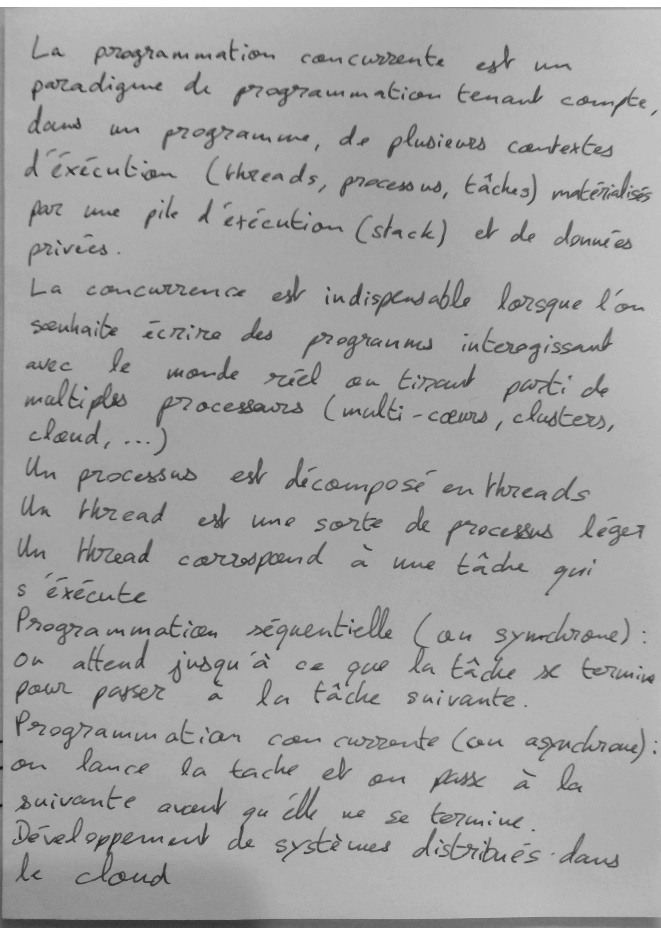 La programmation concurrente est un
paradigme de programmation tenant compte,
dans un programme, de plusieurs contextes
d'éxécution (threads, processus, tâches) matérialisés
par une pile d'éxécution (stack) et de données
privées.
La concurrence est indispensable lorsque l'on
souhaite écrire des programmes interagissant
avec le monde réel ou tirant parti de
multiples processeurs (multi-cœurs, clusters,
cloud, ...)
Un processus est décomposé en threads
Un thread est une sorte de processus léger
Un thread correspond à une tâche qui
s'éxécute
Programmation séquentielle (ou synchrone) :
on attend jusqu'à ce que la tâche se termine
pour passer à la tâche suivante.
Programmation concurrente (ou asynchrone) :
on lance la tache et on passe à la
suivante avant qu'elle ne se termine.
Développement de systèmes distribués dans
le cloud